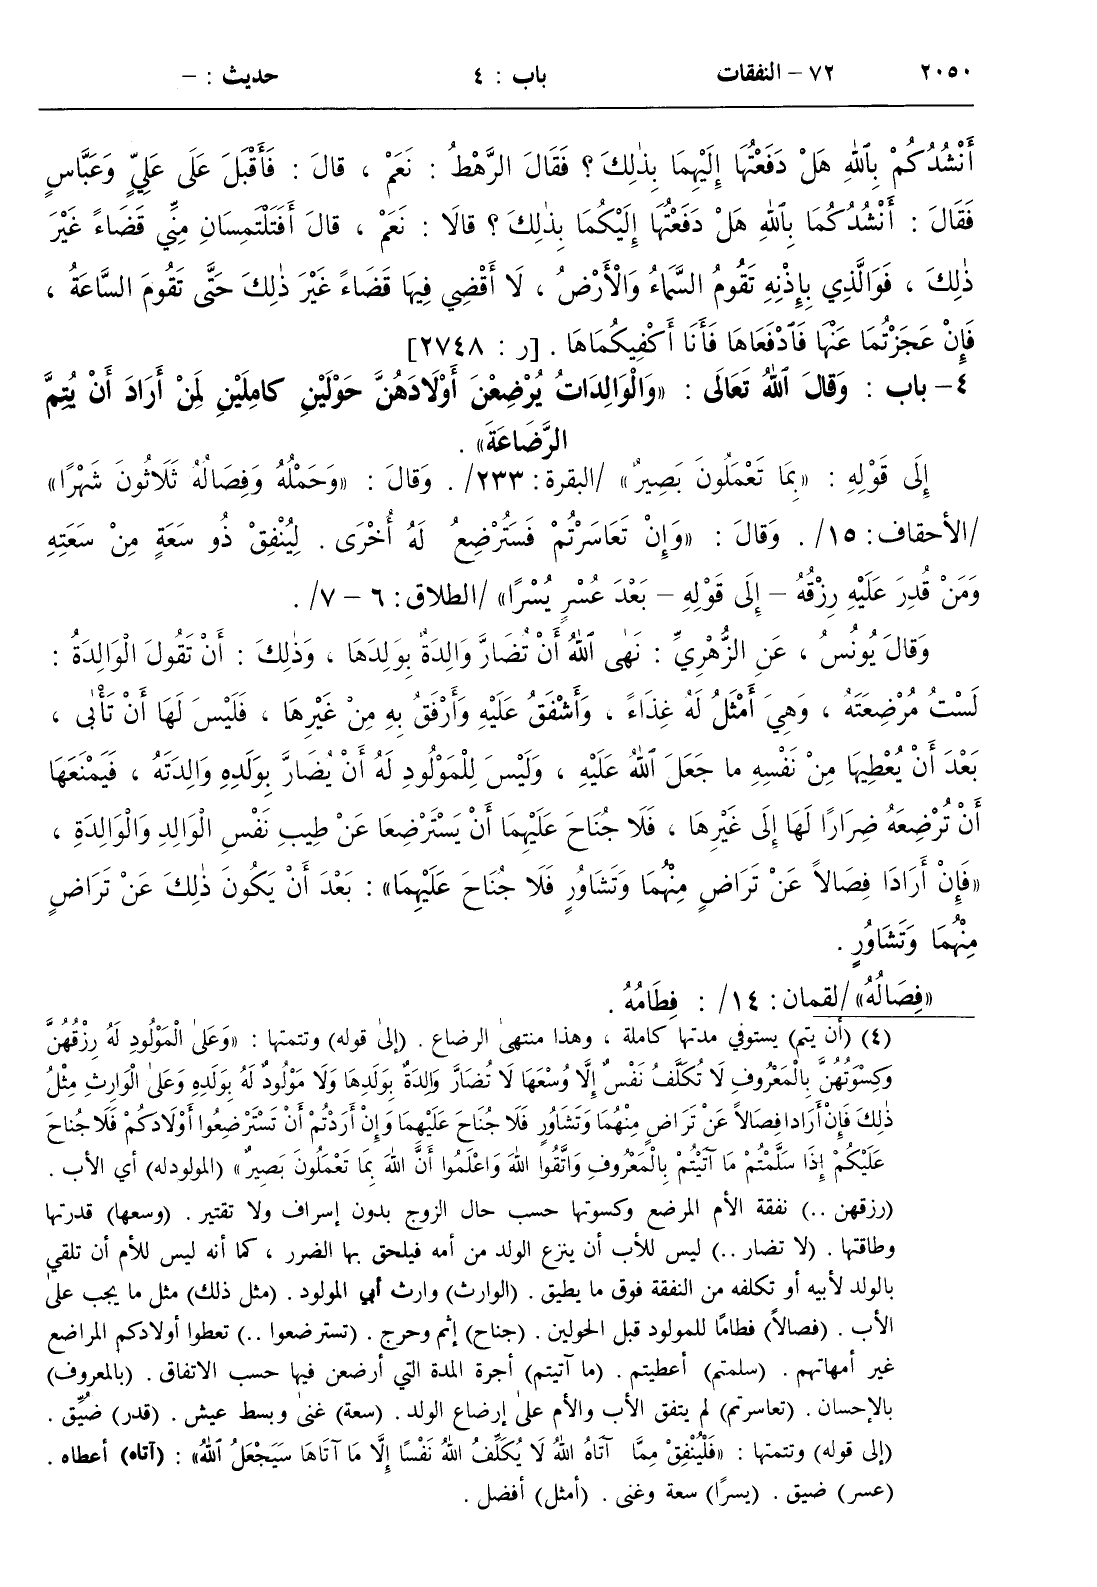 ٢٠٥٠ ٧٢ – النفقات باب : ٤ حديث : –
أَنْشُدُكُمْ بِٱللهِ هَلْ دَفَعْتُهَا إِلَيْهِمَا بِذٰلِكَ ؟ فَقَالَ الرَّهْطُ : نَعَمْ ، قالَ : فَأَقْبَلَ عَلَى عَلِيٍّ وَعَبَّاسٍ
فَقَالَ : أَنْشُدُكُمَا بِٱللهِ هَلْ دَفَعْتُهَا إِلَيْكُمَا بِذٰلِكَ ؟ قالَا : نَعَمْ ، قالَ أَفَتَلْتَمِسَانِ مِنِّي قَضَاءً غَيْرَ
ذٰلِكَ ، فَوَالَّذِي بِإِذْنِهِ تَقُومُ السَّمَاءُ وَالْأَرْضُ ، لَا أَقْضِي فِيهَا قَضَاءً غَيْرَ ذٰلِكَ حَتَّى تَقُومَ السَّاعَةُ ،
فَإِنْ عَجَزْتُمَا عَنْهَا فَٱدْفَعَاهَا فَأَنَا أَكْفِيكُمَاهَا . [ر : ٢٧٤٨]
٤ – باب : وَقَالَ ٱللهُ تَعَالَى : «وَالْوَالِدَاتُ يُرْضِعْنَ أَوْلَادَهُنَّ حَوْلَيْنِ كامِلَيْنِ لِمَنْ أَرَادَ أَنْ يُتِمَّ
الرَّضَاعَةَ» .
إِلَى قَوْلِهِ : «بِمَا تَعْمَلُونَ بَصِيرٌ» /البقرة: ٢٣٣/ . وَقَالَ : «وَحَمْلُهُ وَفِصَالُهُ ثَلَاثُونَ شَهْرًا»
/الأحقاف: ١٥/ . وَقَالَ : «وَإِنْ تَعَاسَرْتُمْ فَسَتُرْضِعُ لَهُ أُخْرَى . لِيُنْفِقْ ذُو سَعَةٍ مِنْ سَعَتِهِ
وَمَنْ قُدِرَ عَلَيْهِ رِزْقُهُ – إِلَى قَوْلِهِ – بَعْدَ عُسْرٍ يُسْرًا» /الطلاق: ٦ – ٧/ .
وَقالَ يُونُسُ ، عَنِ الزُّهْرِيِّ : نَهٰى ٱللهُ أَنْ تُضَارَّ وَالِدَةٌ بِوَلَدِهَا ، وَذٰلِكَ : أَنْ تَقُولَ الْوَالِدَةُ :
لَسْتُ مُرْضِعَتَهُ ، وَهِيَ أَمْثَلُ لَهُ غِذَاءً ، وَأَشْفَقُ عَلَيْهِ وَأَرْفَقُ بِهِ مِنْ غَيْرِهَا ، فَلَيْسَ لَهَا أَنْ تَأْبٰى ،
بَعْدَ أَنْ يُعْطِيَهَا مِنْ نَفْسِهِ ما جَعَلَ ٱللهُ عَلَيْهِ ، وَلَيْسَ لِلْمَوْلُودِ لَهُ أَنْ يُضَارَّ بِوَلَدِهِ وَالِدَتَهُ ، فَيَمْنَعَهَا
أَنْ تُرْضِعَهُ ضِرَارًا لَهَا إِلَى غَيْرِهَا ، فَلَا جُنَاحَ عَلَيْهِمَا أَنْ يَسْتَرْضِعَا عَنْ طِيبِ نَفْسِ الْوَالِدِ وَالْوَالِدَةِ ،
«فَإِنْ أَرَادَا فِصَالاً عَنْ تَرَاضٍ مِنْهُمَا وَتَشَاوُرٍ فَلَا جُنَاحَ عَلَيْهِمَا» : بَعْدَ أَنْ يَكُونَ ذٰلِكَ عَنْ تَرَاضٍ
مِنْهُمَا وَتَشَاوُرٍ .
«فِصَالُهُ» /لقمان: ١٤/ : فِطَامُهُ .
(٤) (أن يتم) يستوفي مدتها كاملة ، وهذا منتهىٰ الرضاع . (إلىٰ قوله) وتتمتها : «وَعَلىٰ الْمَوْلُودِ لَهُ رِزْقُهُنَّ
وَكِسْوَتُهُنَّ بِالْمَعْرُوفِ لَا تُكَلَّفُ نَفْسٌ إِلَّا وُسْعَهَا لَا تُضَارَّ وَالِدَةٌ بِوَلَدِهَا وَلَا مَوْلُودٌ لَهُ بِوَلَدِهِ وَعَلىٰ الْوَارِثِ مِثْلُ
ذٰلِكَ فَإِنْ أَرَادَا فِصَالاً عَنْ تَرَاضٍ مِنْهُمَا وَتَشَاوُرٍ فَلَا جُنَاحَ عَلَيْهِمَا وَإِنْ أَرَدْتُمْ أَنْ تَسْتَرْضِعُوا أَوْلَادَكُمْ فَلَا جُنَاحَ
عَلَيْكُمْ إِذَا سَلَّمْتُمْ مَا آتَيْتُمْ بِالْمَعْرُوفِ وَاتَّقُوا اللهَ وَاعْلَمُوا أَنَّ اللهَ بِمَا تَعْمَلُونَ بَصِيرٌ» (المولودله) أي الأب .
(رزقهن ..) نفقة الأم المرضع وكسوتها حسب حال الزوج بدون إسراف ولا تقتير . (وسعها) قدرتها
وطاقتها . (لا تضار ..) ليس للأب أن ينزع الولد من أمه فيلحق بها الضرر ، كما أنه ليس للأم أن تلقي
بالولد لأبيه أو تكلفه من النفقة فوق ما يطيق . (الوارث) وارث أبي المولود . (مثل ذلك) مثل ما يجب علىٰ
الأب . (فصالاً) فطامًا للمولود قبل الحولين . (جناح) إثم وحرج . (تسترضعوا ..) تعطوا أولادكم المراضع
غير أمهاتهم . (سلمتم) أعطيتم . (ما آتيتم) أجرة المدة التي أرضعن فيها حسب الاتفاق . (بالمعروف)
بالإحسان . (تعاسرتم) لم يتفق الأب والأم علىٰ إرضاع الولد . (سعة) غنىٰ وبسط عيش . (قدر) ضُيِّق .
(إلى قوله) وتتمتها : «فَلْيُنْفِقْ مِمَّا آتَاهُ اللهُ لَا يُكَلِّفُ اللهُ نَفْسًا إِلَّا مَا آتَاهَا سَيَجْعَلُ اللهُ» : (آتاه) أعطاه .
(عسر) ضيق . (يسرًا) سعة وغنى . (أمثل) أفضل .